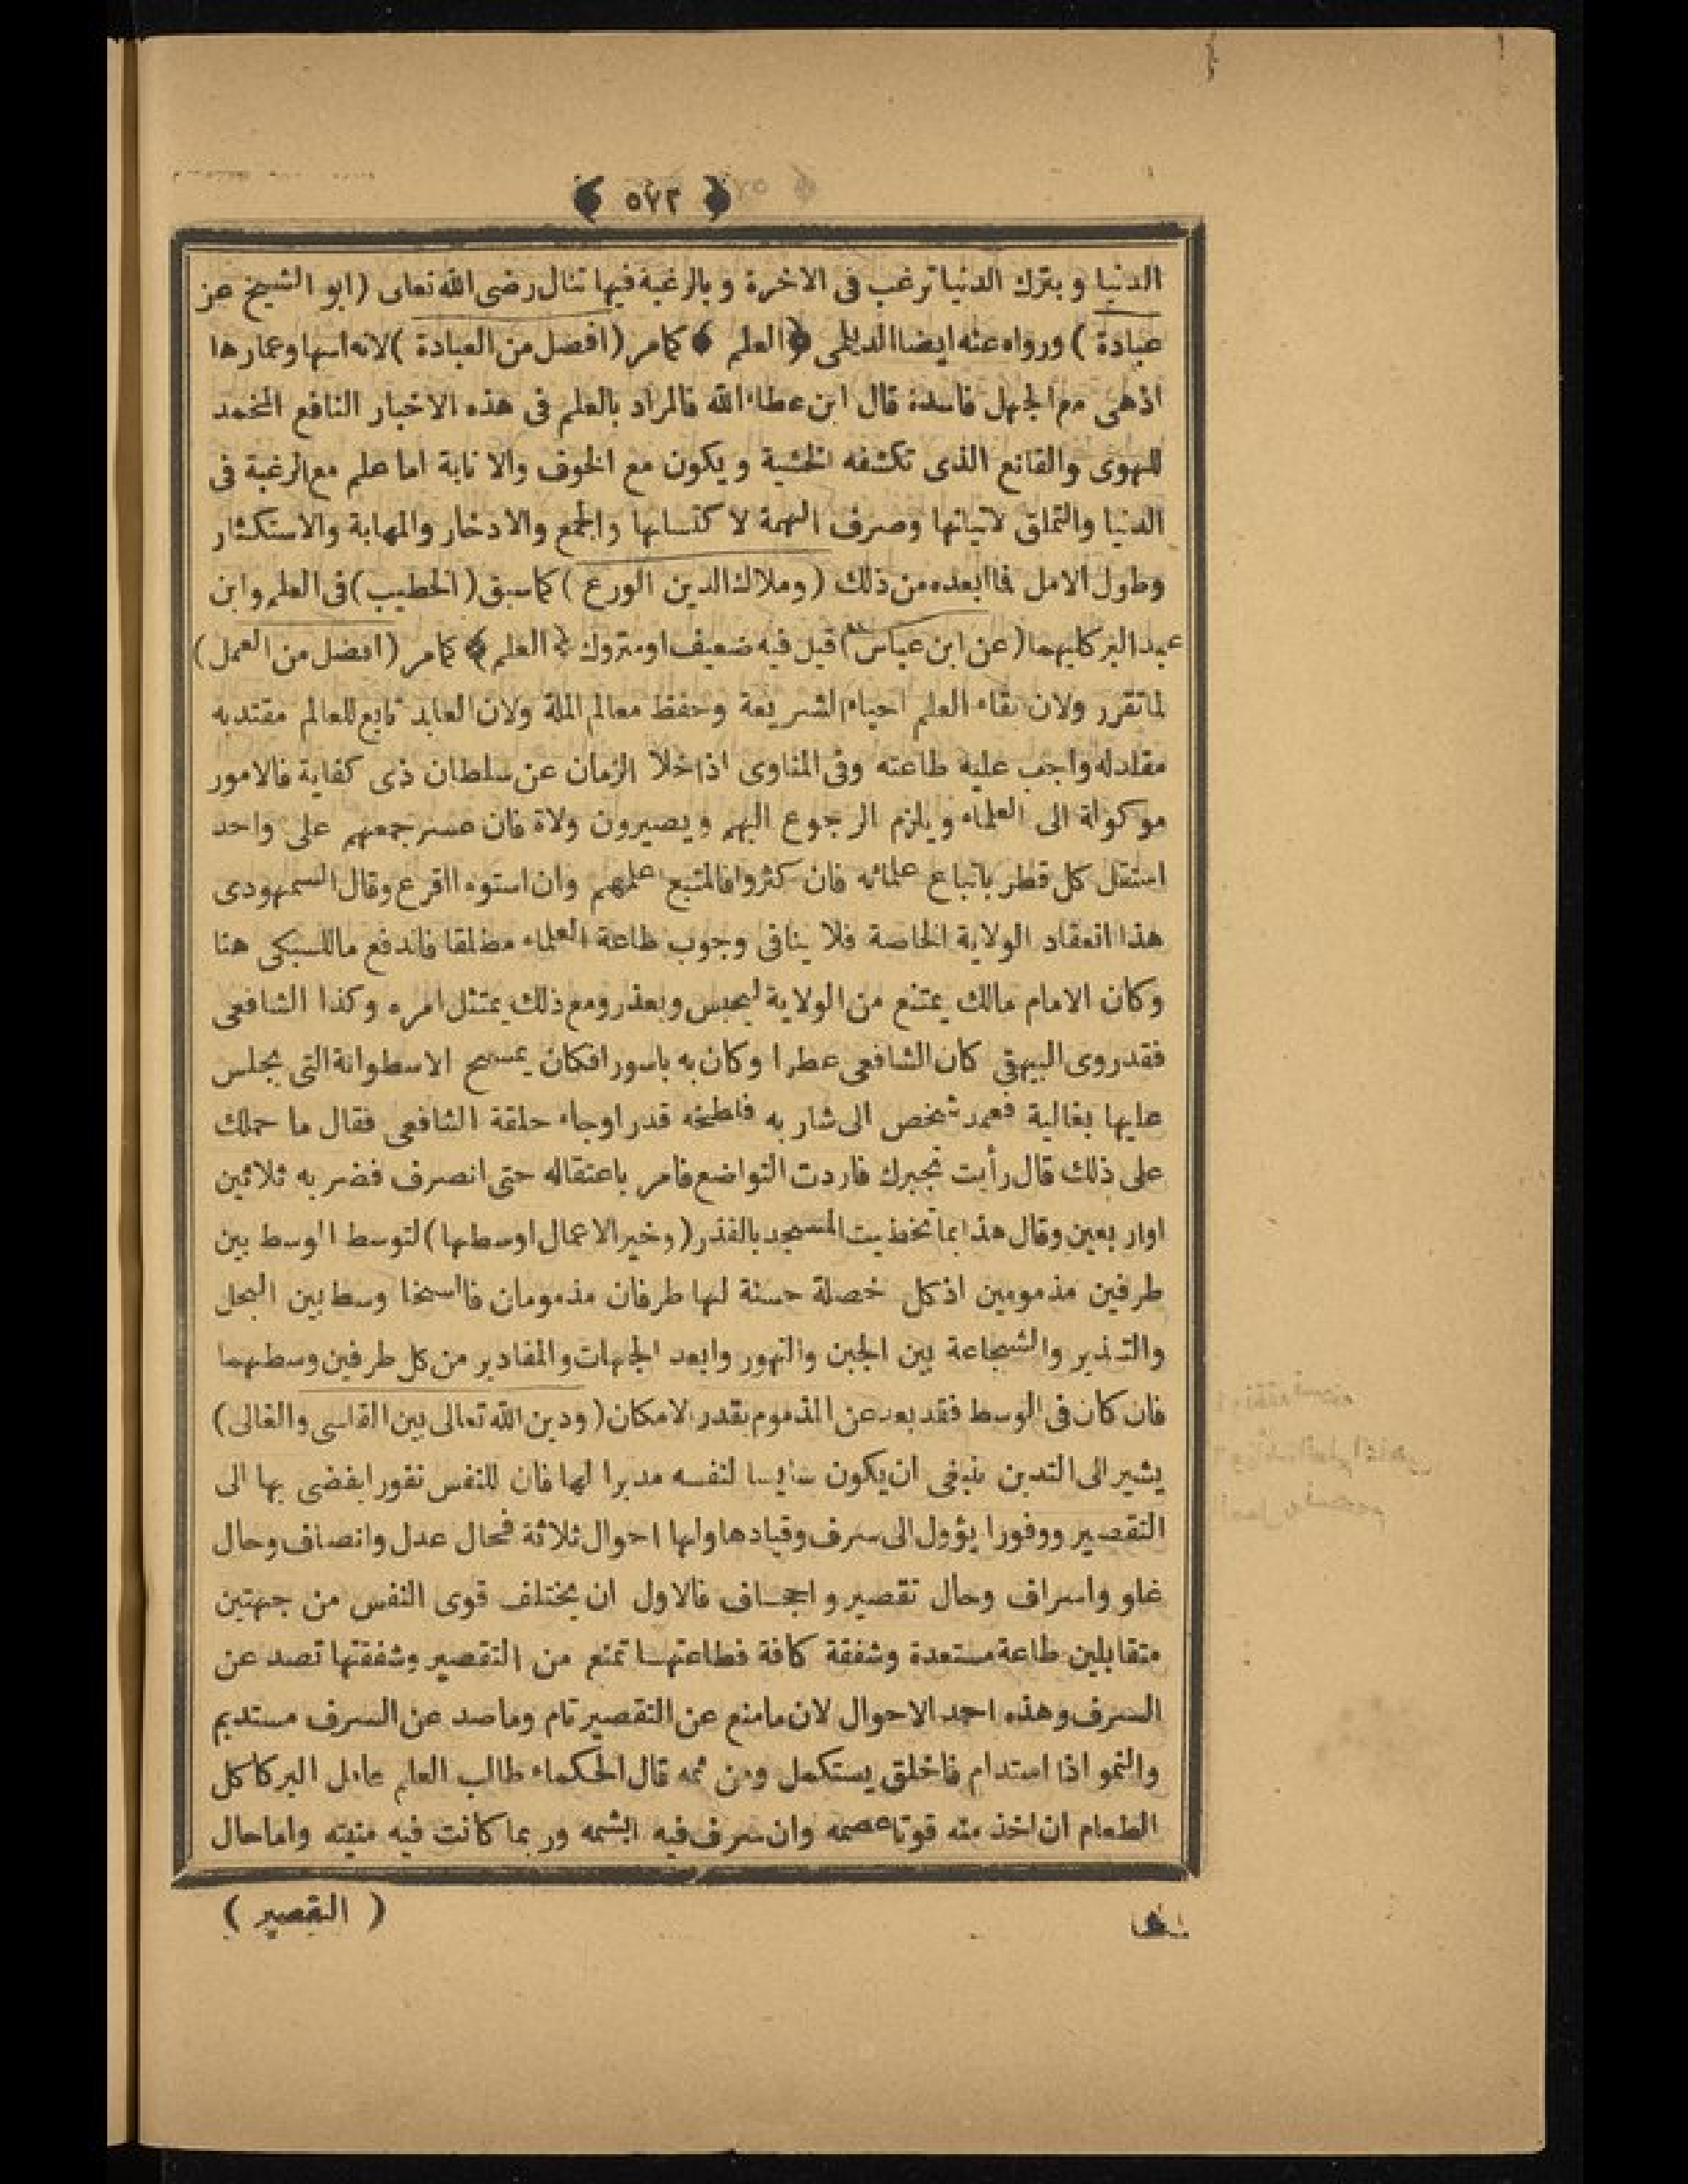 ﴿ ٥٧٢ ﴾
الدنيا وبترك الدنيا ترغب فى الاخرة وبالرغبة فيها تنال رضى الله تعالى (ابو الشيخ عن
عبادة) ورواه عنه ايضا الديلمى ﴿العلم﴾ كامر (افضل من العبادة) لانه اسها وعمارها
اذهى مع الجهل فاسدة قال ابن عطاء الله فالمراد بالعلم فى هذه الاخبار النافع المخمد
للهوى والقانع الذى تكشفه الخشية ويكون مع الخوف والانابة اما علم مع الرغبة فى
الدنيا والتملق لاتيانها وصرف الهمة لاكتسابها والجمع والادخار والمهابة والاستكثار
وطول الامل فا ابعده من ذلك (وملاك الدين الورع) كاسبق (الخطيب) فى العلم وابن
عبد البر كليهما (عن ابن عباس) قيل فيه ضعيف او متروك ﴿العلم﴾ كامر (افضل من العمل)
لماتقرر ولان بقاء العلم احياء الشريعة وحفظ معالم الملة ولان العابد تابع للعالم مقتد به
مقلد له واجب عليه طاعته وفى المناوى اذا خلا الزمان عن سلطان ذى كفاية فالامور
موكولة الى العلماء ويلزم الرجوع اليهم ويصيرون ولاة فان عسر جمعهم على واحد
استقل كل قطر باتباع علمائه فان كثروا فالمتبع اعلمهم وان استووا اقرع وقال السمهودى
هذا انعقاد الولاية الخاصة فلا ينافى وجوب طاعة العلماء مطلقا فاندفع ماللسبكى هنا
وكان الامام مالك يمتنع من الولاية ليحبس ويعذر ومع ذلك يمتثل امره وكذا الشافعى
فقد روى البيهقى كان الشافعى عطرا وكان به باسورا فكان يمسح الاسطوانة التى يجلس
عليها بغالية فعمد شخص الى شاربه فلطخه قدرا وجاء حلقة الشافعى فقال ما حملك
على ذلك قال رأيت تجبرك فاردت التواضع فامر باعتقاله حتى انصرف فضربه ثلاثين
اواربعين وقال هذا بما تخطيت المسجد بالقذر (وخير الاعمال اوسطها) لتوسط الوسط بين
طرفين مذمومين اذ كل خصلة حسنة لها طرفان مذمومان فالسخا وسط بين البخل
والتبذير والشجاعة بين الجبن والتهور وابعد الجهات والمقادير من كل طرفين وسطهما
فان كان فى الوسط فقد بعد عن المذموم بقدر الامكان (ودين الله تعالى بين القاسى والغالى)
يشير الى التدين ينبغى ان يكون سايسا لنفسه مدبرا لها فان للنفس نفورا يفضى بها الى
التقصير ووفورا يؤول الى سرف وقيادها ولها احوال ثلاثة فحال عدل وانصاف وحال
غلو واسراف وحال تقصير واجحاف فالاول ان يختلف قوى النفس من جهتين
متقابلين طاعة مستعدة وشفقة كافة فطاعتها تمنع من التقصير وشفقتها تصد عن
السرف وهذه احمد الاحوال لان مامنع عن التقصير تام وماصد عن السرف مستديم
والنمو اذا استدام فاخلق يستكمل ومن ثمه قال الحكماء طالب العلم عامل البر كاكل
الطعام ان اخذ منه قوتا عصمه وان سرف فيه ابشمه وربما كانت فيه منيته واما حال
(التقصير)